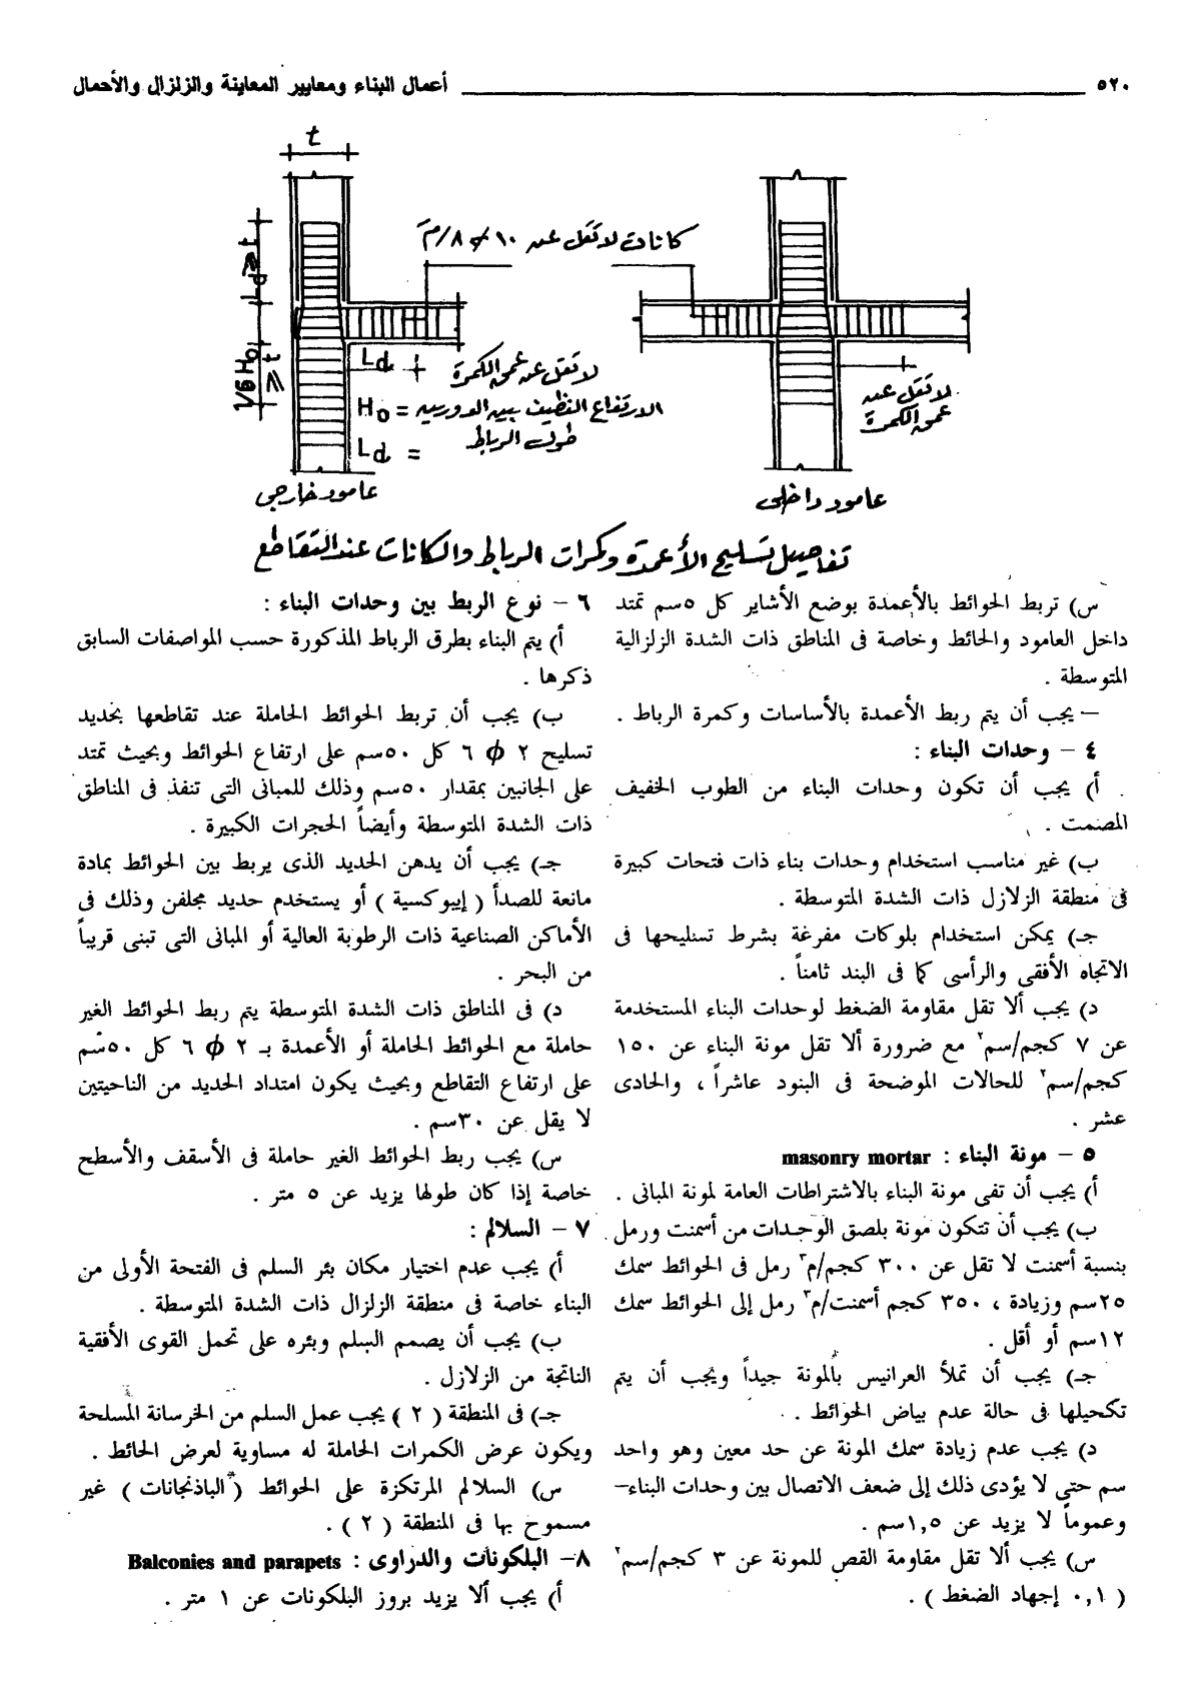 ٥٢٠ أعمال البناء ومعايير المعاينة والزلزال والأحمال
t
كانات لا تقل عن ١٠ ϕ ٨/م
Ld ≥ t
1/6 H₀ ≥ t
Ld
لا تقل عن عمق الكمرة
H₀ = الارتفاع النظيف بين الدورين
Ld = طول الرباط
عامود خارجي
لا تقل عن
عمق الكمرة
عامود داخلي
تفاصيل تسليح الأعمدة وكمرات الرباط والكانات عند التقاطع
س) تربط الحوائط بالأعمدة بوضع الأشاير كل ٥سم تمتد
داخل العامود والحائط وخاصة فى المناطق ذات الشدة الزلزالية
المتوسطة .
– يجب أن يتم ربط الأعمدة بالأساسات وكمرة الرباط .
٤ – وحدات البناء :
أ) يجب أن تكون وحدات البناء من الطوب الخفيف
المصمت .
ب) غير مناسب استخدام وحدات بناء ذات فتحات كبيرة
فى منطقة الزلازل ذات الشدة المتوسطة .
جـ) يمكن استخدام بلوكات مفرغة بشرط تسليحها فى
الاتجاه الأفقى والرأسى كما فى البند ثامناً .
د) يجب ألا تقل مقاومة الضغط لوحدات البناء المستخدمة
عن ٧ كجم/سم٢ مع ضرورة ألا تقل مونة البناء عن ١٥٠
كجم/سم٢ للحالات الموضحة فى البنود عاشراً ، والحادى
عشر .
٥ – مونة البناء : masonry mortar
أ) يجب أن تفى مونة البناء بالاشتراطات العامة لمونة المبانى .
ب) يجب أن تتكون مونة بلصق الوحدات من أسمنت ورمل
بنسبة أسمنت لا تقل عن ٣٠٠ كجم/م٣ رمل فى الحوائط سمك
٢٥سم وزيادة ، ٣٥٠ كجم أسمنت/م٣ رمل إلى الحوائط سمك
١٢سم أو أقل .
جـ) يجب أن تملأ العرانيس بالمونة جيداً ويجب أن يتم
تكحيلها فى حالة عدم بياض الحوائط .
د) يجب عدم زيادة سمك المونة عن حد معين وهو واحد
سم حتى لا يؤدى ذلك إلى ضعف الاتصال بين وحدات البناء–
وعموماً لا يزيد عن ١,٥سم .
س) يجب ألا تقل مقاومة القص للمونة عن ٣ كجم/سم٢
( ٠,١ إجهاد الضغط ) .
٦ – نوع الربط بين وحدات البناء :
أ) يتم البناء بطرق الرباط المذكورة حسب المواصفات السابق
ذكرها .
ب) يجب أن تربط الحوائط الحاملة عند تقاطعها بحديد
تسليح ٢ ϕ ٦ كل ٥٠سم على ارتفاع الحوائط وبحيث تمتد
على الجانبين بمقدار ٥٠سم وذلك للمبانى التى تنفذ فى المناطق
ذات الشدة المتوسطة وأيضاً الحجرات الكبيرة .
جـ) يجب أن يدهن الحديد الذى يربط بين الحوائط بمادة
مانعة للصدأ ( إيبوكسية ) أو يستخدم حديد مجلفن وذلك فى
الأماكن الصناعية ذات الرطوبة العالية أو المبانى التى تبنى قريباً
من البحر .
د) فى المناطق ذات الشدة المتوسطة يتم ربط الحوائط الغير
حاملة مع الحوائط الحاملة أو الأعمدة بـ ٢ ϕ ٦ كل ٥٠سم
على ارتفاع التقاطع وبحيث يكون امتداد الحديد من الناحيتين
لا يقل عن ٣٠سم .
س) يجب ربط الحوائط الغير حاملة فى الأسقف والأسطح
خاصة إذا كان طولها يزيد عن ٥ متر .
٧ – السلالم :
أ) يجب عدم اختيار مكان بئر السلم فى الفتحة الأولى من
البناء خاصة فى منطقة الزلزال ذات الشدة المتوسطة .
ب) يجب أن يصمم السلم وبئره على تحمل القوى الأفقية
الناتجة من الزلازل .
جـ) فى المنطقة ( ٢ ) يجب عمل السلم من الخرسانة المسلحة
ويكون عرض الكمرات الحاملة له مساوية لعرض الحائط .
س) السلالم المرتكزة على الحوائط ( الباذنجانات* ) غير
مسموح بها فى المنطقة ( ٢ ) .
٨– البلكونات والدراوى : Balconies and parapets
أ) يجب ألا يزيد بروز البلكونات عن ١ متر .